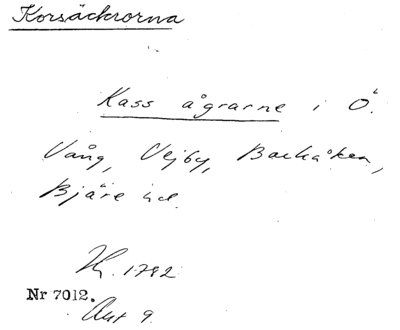 Korsäckrorna
Kass ågrarne i Ö.
Vång, Vejby, Backåkea,
Bjäre hd.
Kh. 1782
Nr 7012.
Akt 9.